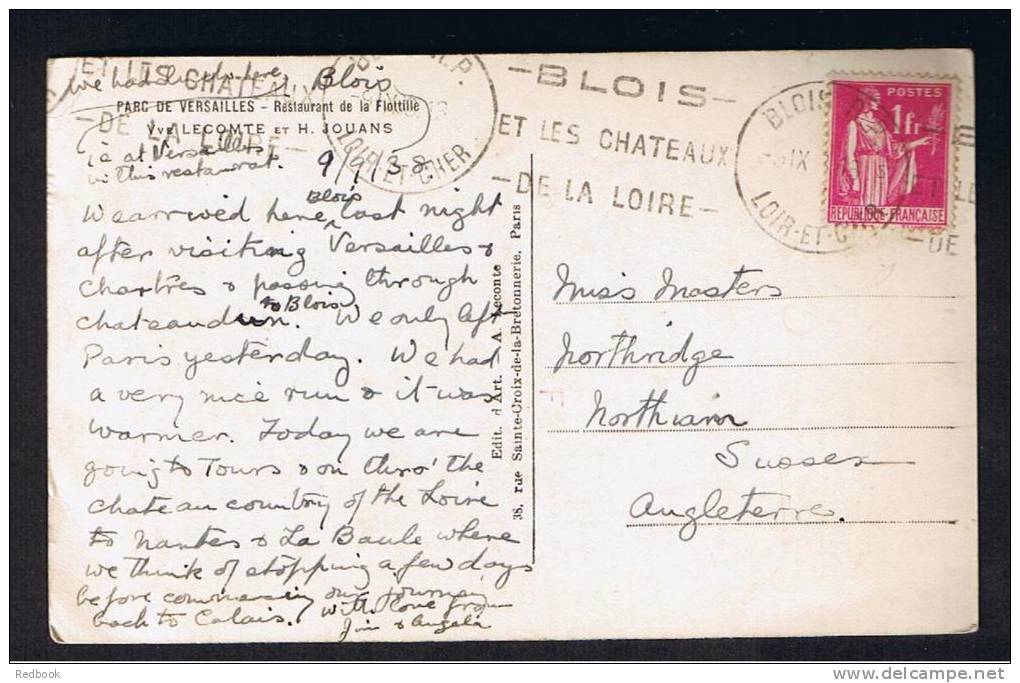 we had lunch here
Blois
PARC DE VERSAILLES – Restaurant de la Flottille
Vve LECOMTE ET H. JOUANS
ie at Versailles
in this restaurant.
9/9/38
We arrived here Blois last night
after visiting Versailles &
Chartres & passing through
Chateaudun to Blois. We only left
Paris yesterday. We had
a very nice run & it was
warmer. Today we are
going to Tours & on thro' the
chateau country of the Loire
to Nantes & La Baule where
we think of stopping a few days
before commencing our journey
back to Calais. With love from
Jim & Angela
Edit. d'Art. – A. Leconte
38, rue Sainte-Croix-de-la-Bretonnerie, Paris
ET LES CHATEAUX
–DE LA LOIRE–
LOIR-ET-CHER
–BLOIS–
ET LES CHATEAUX
–DE LA LOIRE–
BLOIS
LOIR-ET-CHER
POSTES
1fr
REPUBLIQUE FRANÇAISE
–DE
Miss Masters
Northridge
Northiam
Sussex
Angleterre.
Redbook
www.delcampe.net